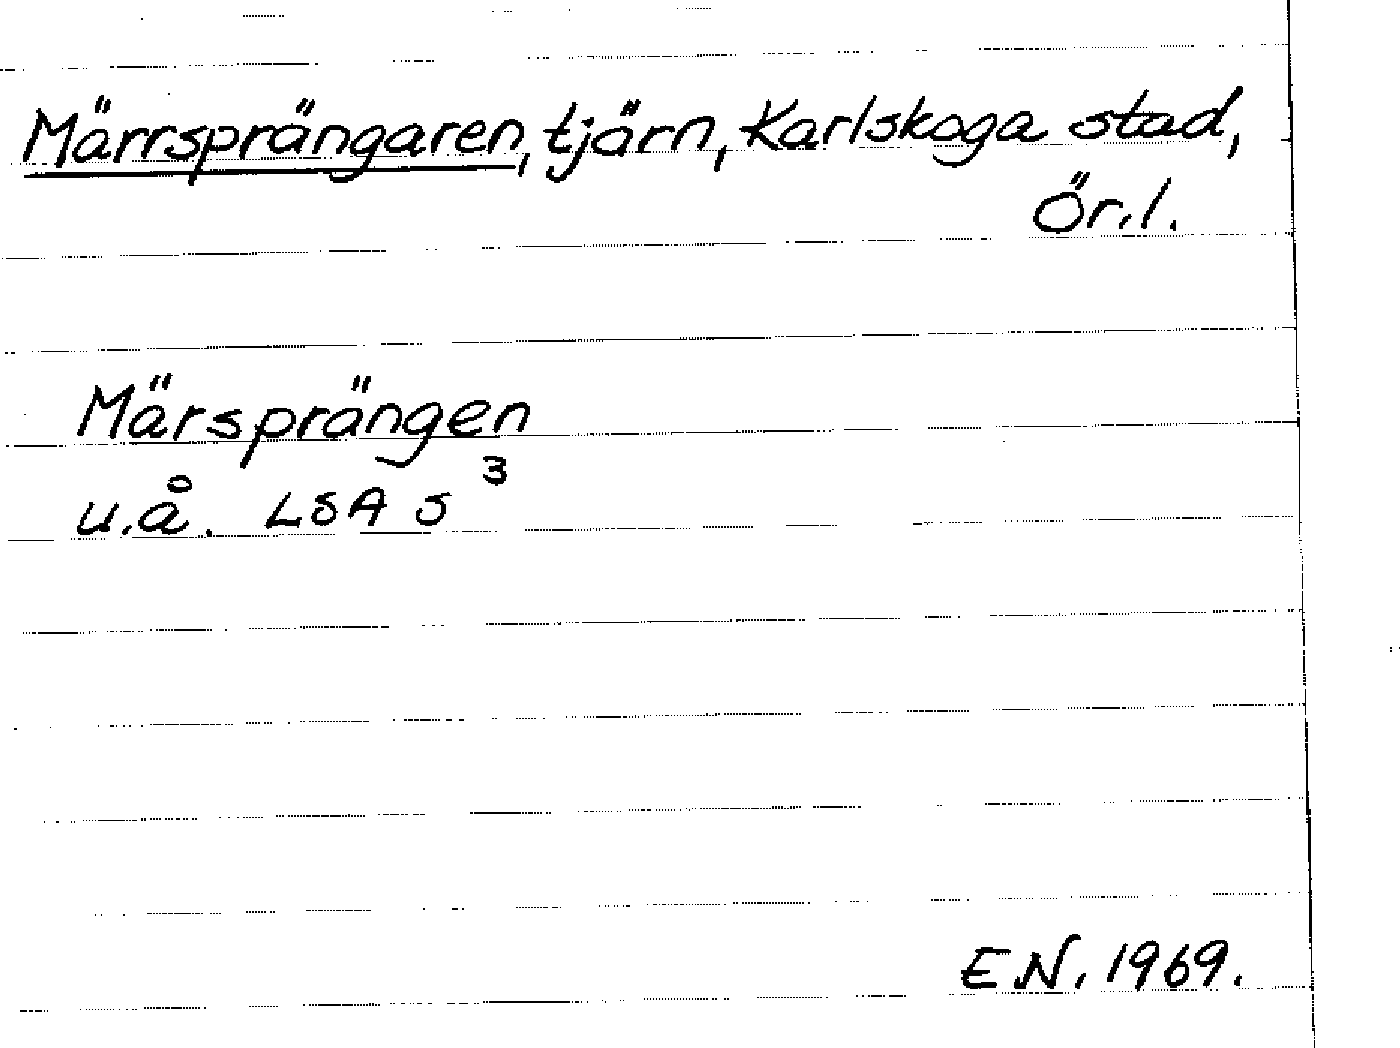 Märrsprängaren, tjärn, Karlskoga stad,
Ör.l.
Märsprängen
u.å. LSA S³
E.N. 1969.